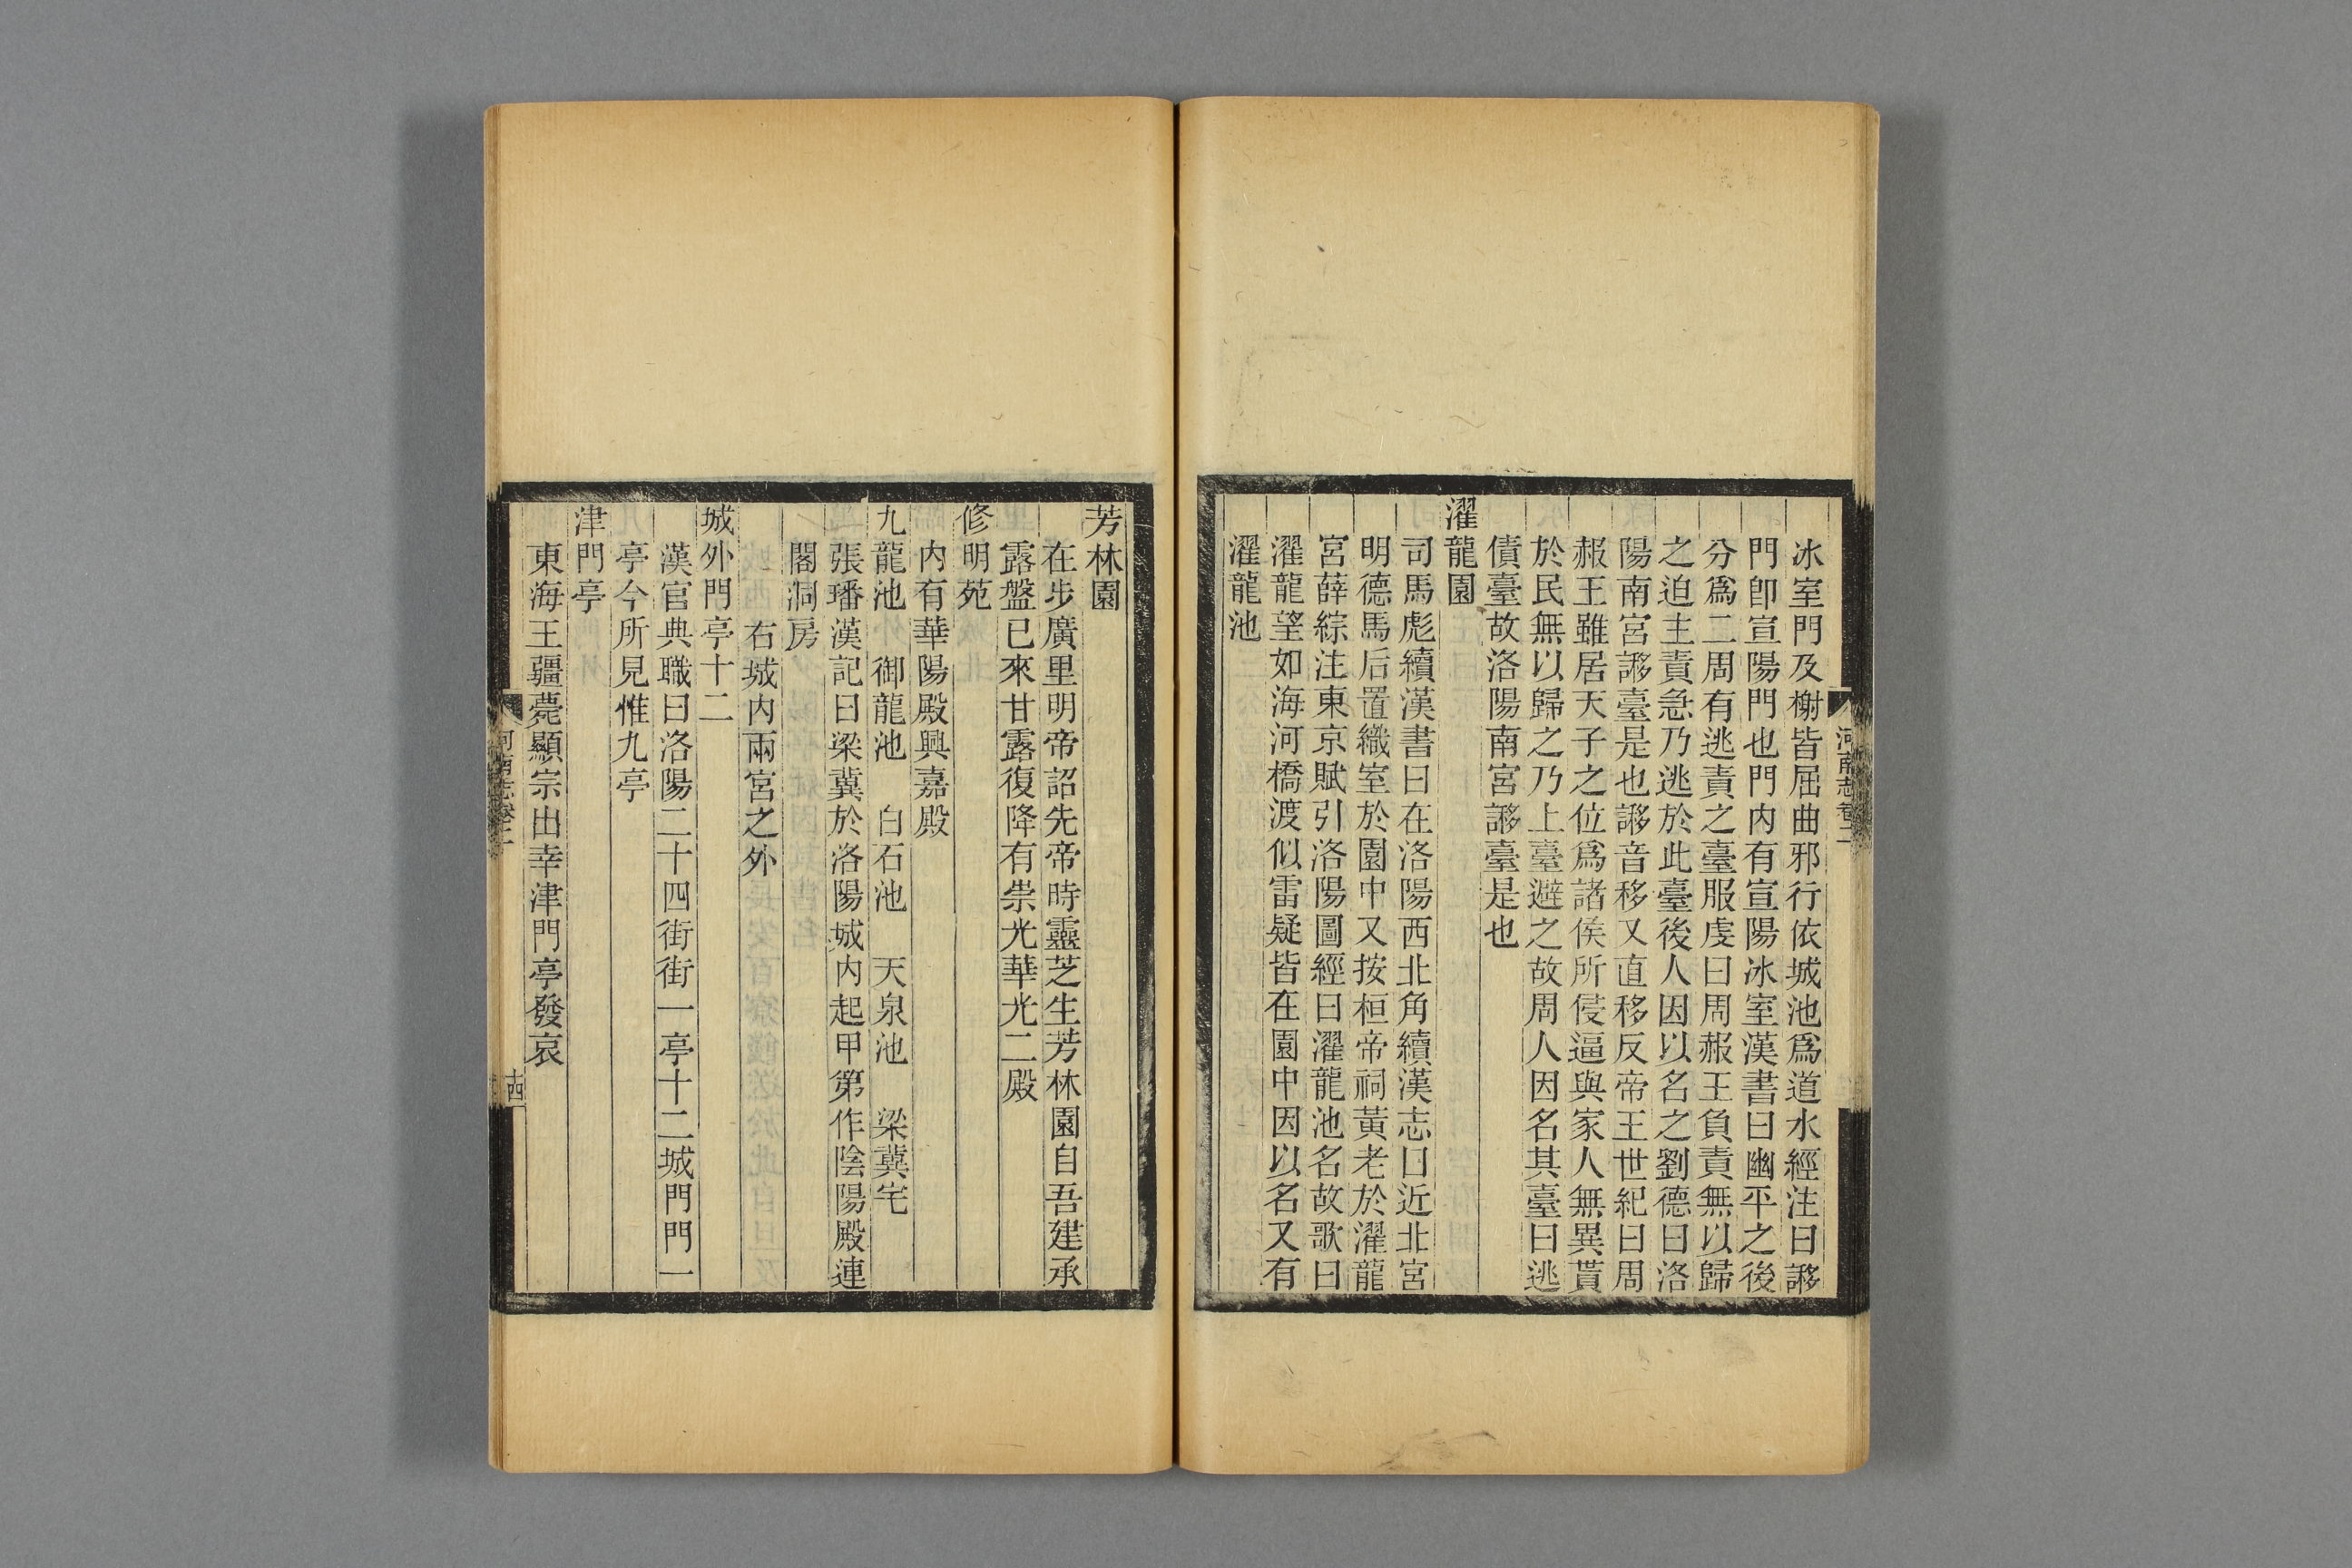 冰室門及榭皆屈曲邪行依城池爲道水經注曰謻
門卽宣陽門也門內有宣陽冰室漢書曰幽平之後
分爲二周有逃責之臺服虔曰周赧王負責無以歸
之迫主責急乃逃於此臺後人因以名之劉德曰洛
陽南宮謻臺是也謻音移又直移反帝王世紀曰周
赧王雖居天子之位爲諸侯所侵逼與家人無異貰
於民無以歸之乃上臺避之故周人因名其臺曰逃
債臺故洛陽南宮謻臺是也
濯龍園
司馬彪續漢書曰在洛陽西北角續漢志曰近北宮
明德馬后置織室於園中又按桓帝祠黃老於濯龍
宮薛綜注東京賦引洛陽圖經曰濯龍池名故歌曰
濯龍望如海河橋渡似雷疑皆在園中因以名又有
濯龍池
河南志卷二
芳林園
在步廣里明帝詔先帝時靈芝生芳林園自吾建承
露盤已來甘露復降有崇光華光二殿
修明苑
內有華陽殿興嘉殿
九龍池　御龍池　白石池　天泉池　梁冀宅
張璠漢記曰梁冀於洛陽城內起甲第作陰陽殿連
閣洞房
右城內兩宮之外
城外門亭十二
漢官典職曰洛陽二十四街街一亭十二城門門一
亭今所見惟九亭
津門亭
東海王疆薨顯宗出幸津門亭發哀
河南志卷二
十四